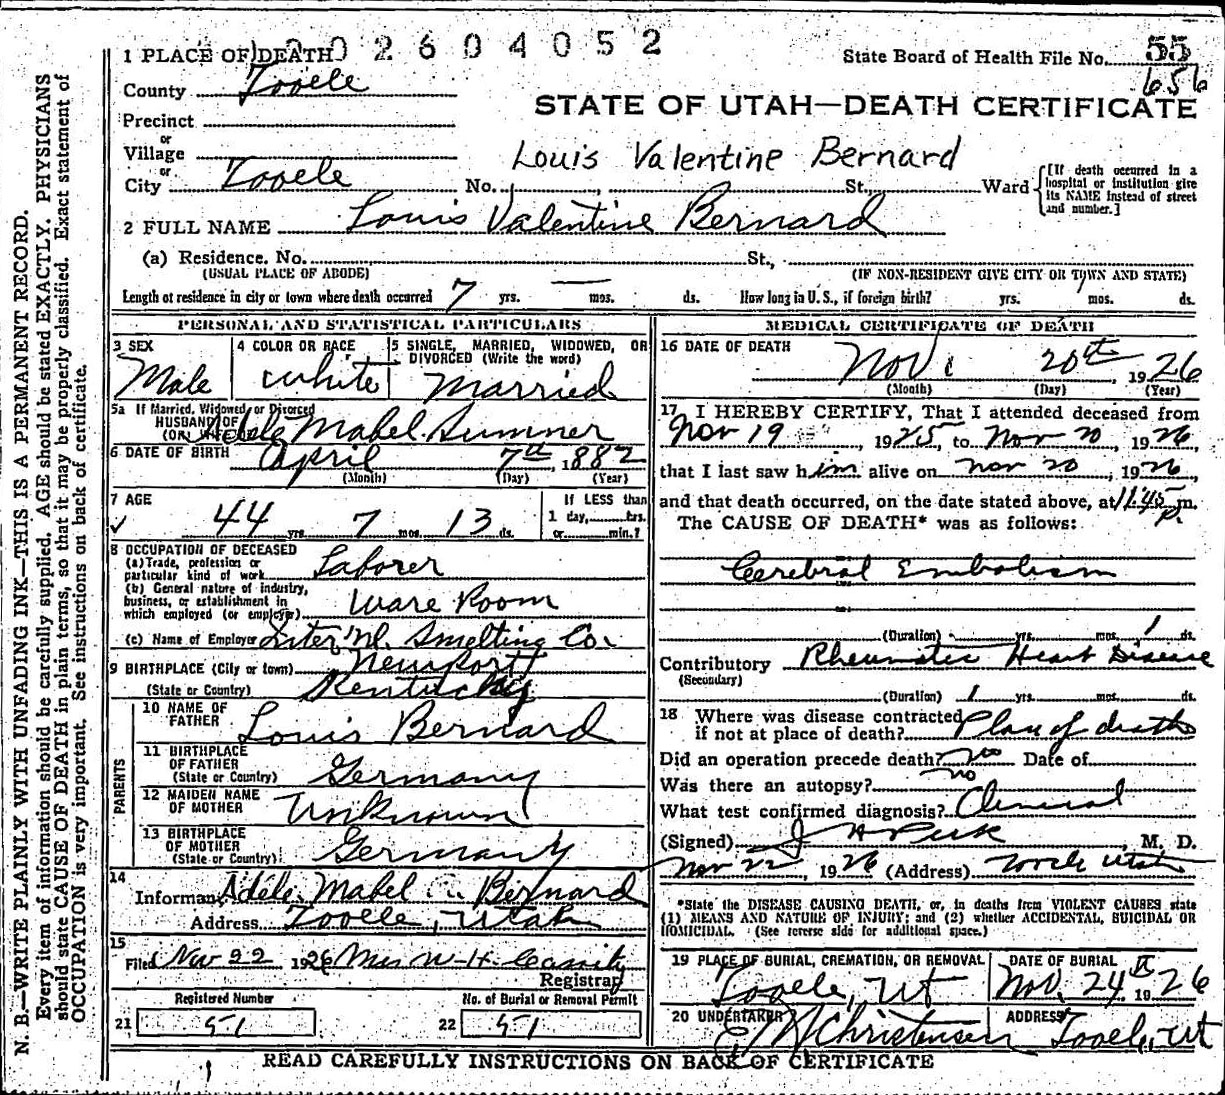 2604052
1 PLACE OF DEATH
State Board of Health File No. 55
656
County Tooele
STATE OF UTAH—DEATH CERTIFICATE
Precinct
or
Village
Louis Valentine Bernard
or
City Tooele No. St. Ward
[If death occurred in a hospital or institution give its NAME instead of street and number.]
2 FULL NAME Louis Valentine Bernard
(a) Residence. No. St.,
(USUAL PLACE OF ABODE) (IF NON-RESIDENT GIVE CITY OR TOWN AND STATE)
Length of residence in city or town where death occurred 7 yrs. — mos. ds. How long in U.S., if foreign birth? yrs. mos. ds.
PERSONAL AND STATISTICAL PARTICULARS
3 SEX
Male
4 COLOR OR RACE
White
5 SINGLE, MARRIED, WIDOWED, OR DIVORCED (Write the word)
Married
5a If Married, Widowed or Divorced
HUSBAND OF
(OR) WIFE OF Adele Mabel Sumner
6 DATE OF BIRTH April 7th, 1882
(Month) (Day) (Year)
7 AGE
44 yrs. 7 mos. 13 ds.
If LESS than
1 day, hrs.
or min.?
8 OCCUPATION OF DECEASED
(a) Trade, profession or
particular kind of work Laborer
(b) General nature of industry,
business, or establishment in
which employed (or employer) Ware Room
(c) Name of Employer Inter'nl. Smelting Co.
9 BIRTHPLACE (City or town) Newport
(State or Country) Kentucky
PARENTS
10 NAME OF
FATHER Louis Bernard
11 BIRTHPLACE
OF FATHER
(State or Country) Germany
12 MAIDEN NAME
OF MOTHER Unknown
13 BIRTHPLACE
OF MOTHER
(State or Country) Germany
14
Informant Adele Mabel Bernard
Address Tooele, Utah
15
Filed Nov 22 1926 Mrs W. H. Cassity
Registrar
Registered Number
21 51
No. of Burial or Removal Permit
22 51
MEDICAL CERTIFICATE OF DEATH
16 DATE OF DEATH
Nov. 20th, 1926
(Month) (Day) (Year)
17 I HEREBY CERTIFY, That I attended deceased from
Nov 19, 1925, to Nov 20, 1926,
that I last saw him alive on Nov 20, 1926,
and that death occurred, on the date stated above, at 11:45 P. m.
The CAUSE OF DEATH* was as follows:
Cerebral Embolism
(Duration) yrs. mos. 1 ds.
Contributory Rheumatic Heart Disease
(Secondary)
(Duration) 1 yrs. mos. ds.
18 Where was disease contracted
if not at place of death? Place of death
Did an operation precede death? no Date of
Was there an autopsy? no
What test confirmed diagnosis? Clinical
(Signed) J H Peck, M. D.
Nov 22, 1926 (Address) Tooele Utah
*State the DISEASE CAUSING DEATH, or, in deaths from VIOLENT CAUSES state
(1) MEANS AND NATURE OF INJURY; and (2) whether ACCIDENTAL, SUICIDAL OR
HOMICIDAL. (See reverse side for additional space.)
19 PLACE OF BURIAL, CREMATION, OR REMOVAL
Tooele, Ut
DATE OF BURIAL
Nov. 24 1926
20 UNDERTAKER
E M Christensen
ADDRESS
Tooele, Ut
READ CAREFULLY INSTRUCTIONS ON BACK OF CERTIFICATE
N. B.—WRITE PLAINLY WITH UNFADING INK—THIS IS A PERMANENT RECORD.
Every item of information should be carefully supplied. AGE should be stated EXACTLY. PHYSICIANS
should state CAUSE OF DEATH in plain terms, so that it may be properly classified. Exact statement of
OCCUPATION is very important. See instructions on back of certificate.